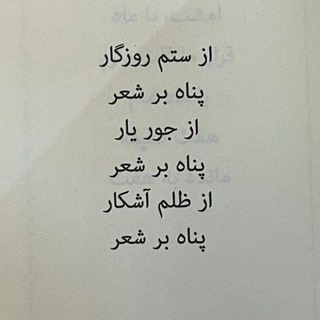 از ستم روزگار
پناه بر شعر
از جور یار
پناه بر شعر
از ظلم آشکار
پناه بر شعر